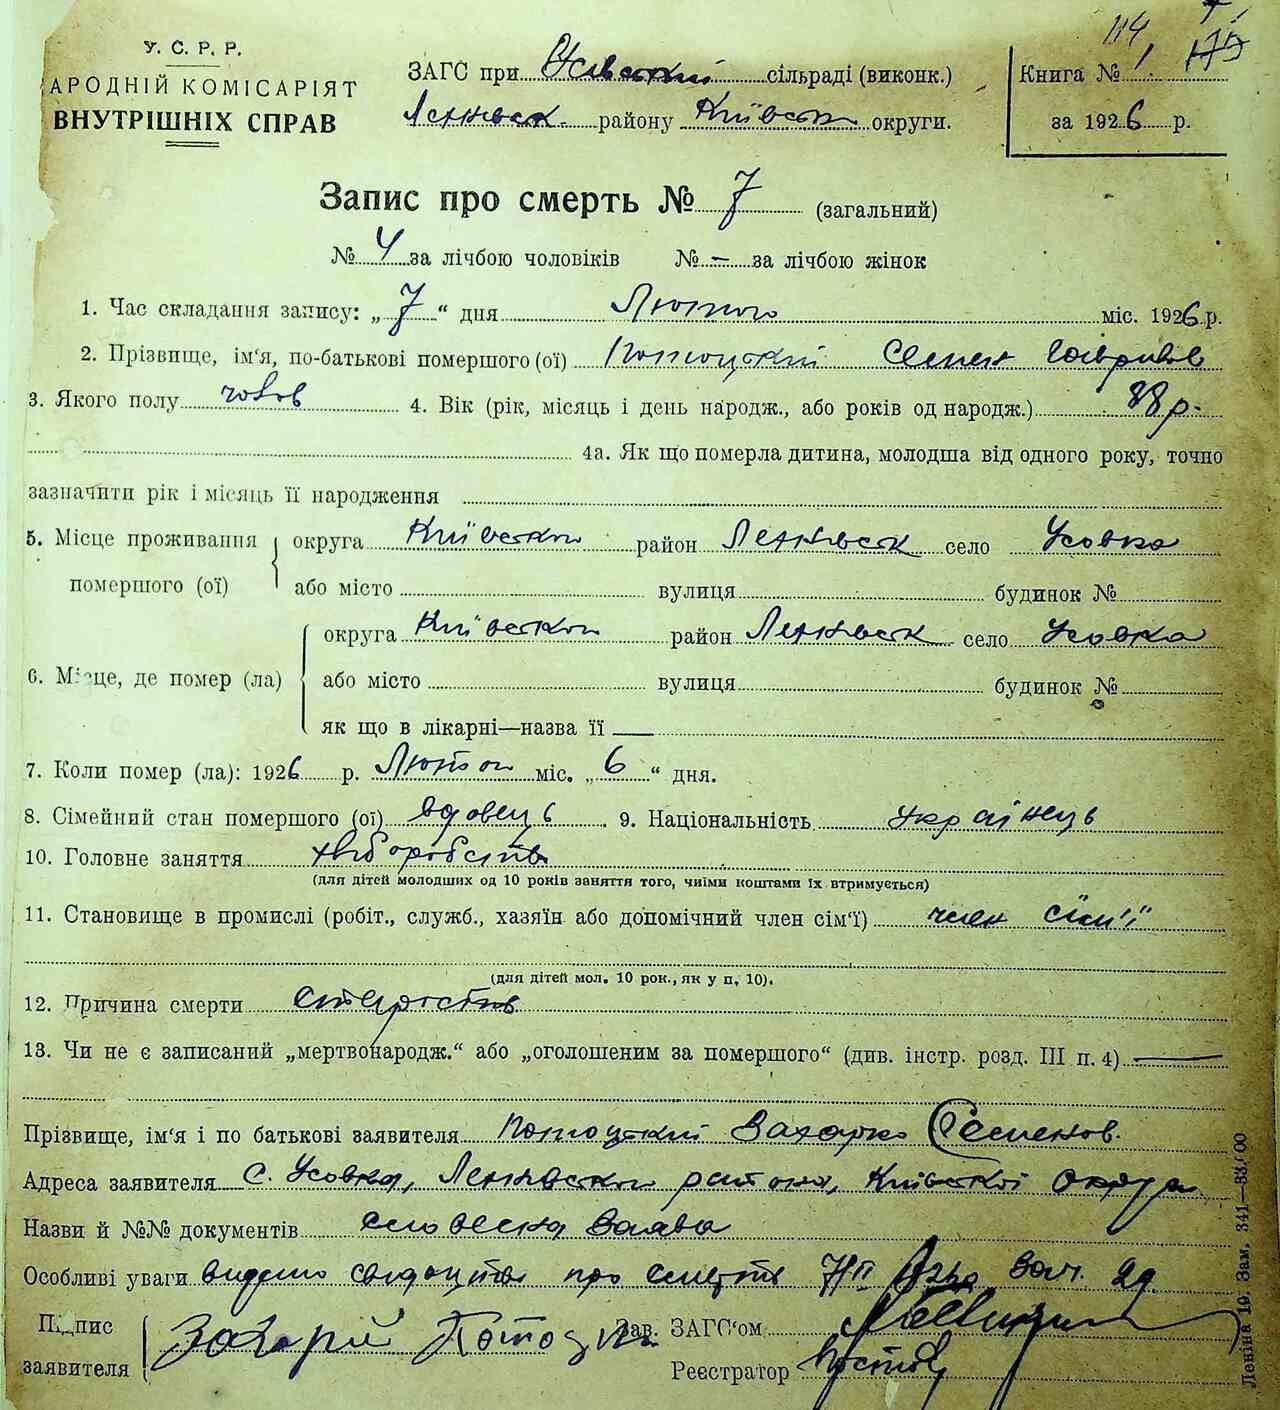 У. С. Р. Р.
АРОДНІЙ КОМІСАРІЯТ
ВНУТРІШНІХ СПРАВ
ЗАГС при Усівський сільраді (виконк.)
району Київськ округи.
114
Книга № 1
за 1926 р.
Запис про смерть № 7 (загальний)
№ 4 за лічбою чоловіків № — за лічбою жінок
1. Час складання запису: „7“ дня Лютого міс. 1926 р.
2. Прізвище, ім‘я, по-батькові помершого (ої) Потоцький Семен Гаврилов
3. Якого полу чолов 4. Вік (рік, місяць і день народж., або років од народж.) 88 р.
4а. Як що померла дитина, молодша від одного року, точно
зазначити рік і місяць її народження
5. Місце проживання помершого (ої) округа Київської район село Усовка
або місто вулиця будинок №
6. Місце, де помер (ла) округа Київської район село Усовка
або місто вулиця будинок №
як що в лікарні—назва її —
7. Коли помер (ла): 1926 р. Лютого міс. „6“ дня.
8. Сімейний стан помершого (ої) вдовець 9. Національність Українець
10. Головне заняття хліборобств
(для дітей молодших од 10 років заняття того, чиїми коштами їх втримується)
11. Становище в промислі (робіт., служб., хазяїн або допомічний член сім‘ї) член сім'ї
(для дітей мол. 10 рок., як у п. 10).
12. Причина смерти
13. Чи не є записаний „мертвонародж.“ або „оголошеним за помершого“ (див. інстр. розд. III п. 4) —
Прізвище, ім‘я і по батькові заявителя Потоцький Захарко Семенов.
Адреса заявителя с. Усовка, района, Київської Округи
Назви й №№ документів словесна заява
Особливі уваги видано про смерть 7/II
Підпис заявителя Захарій Зав. ЗАГС‘ом
Реєстратор
Леніна 19. Зам. 341—83.000